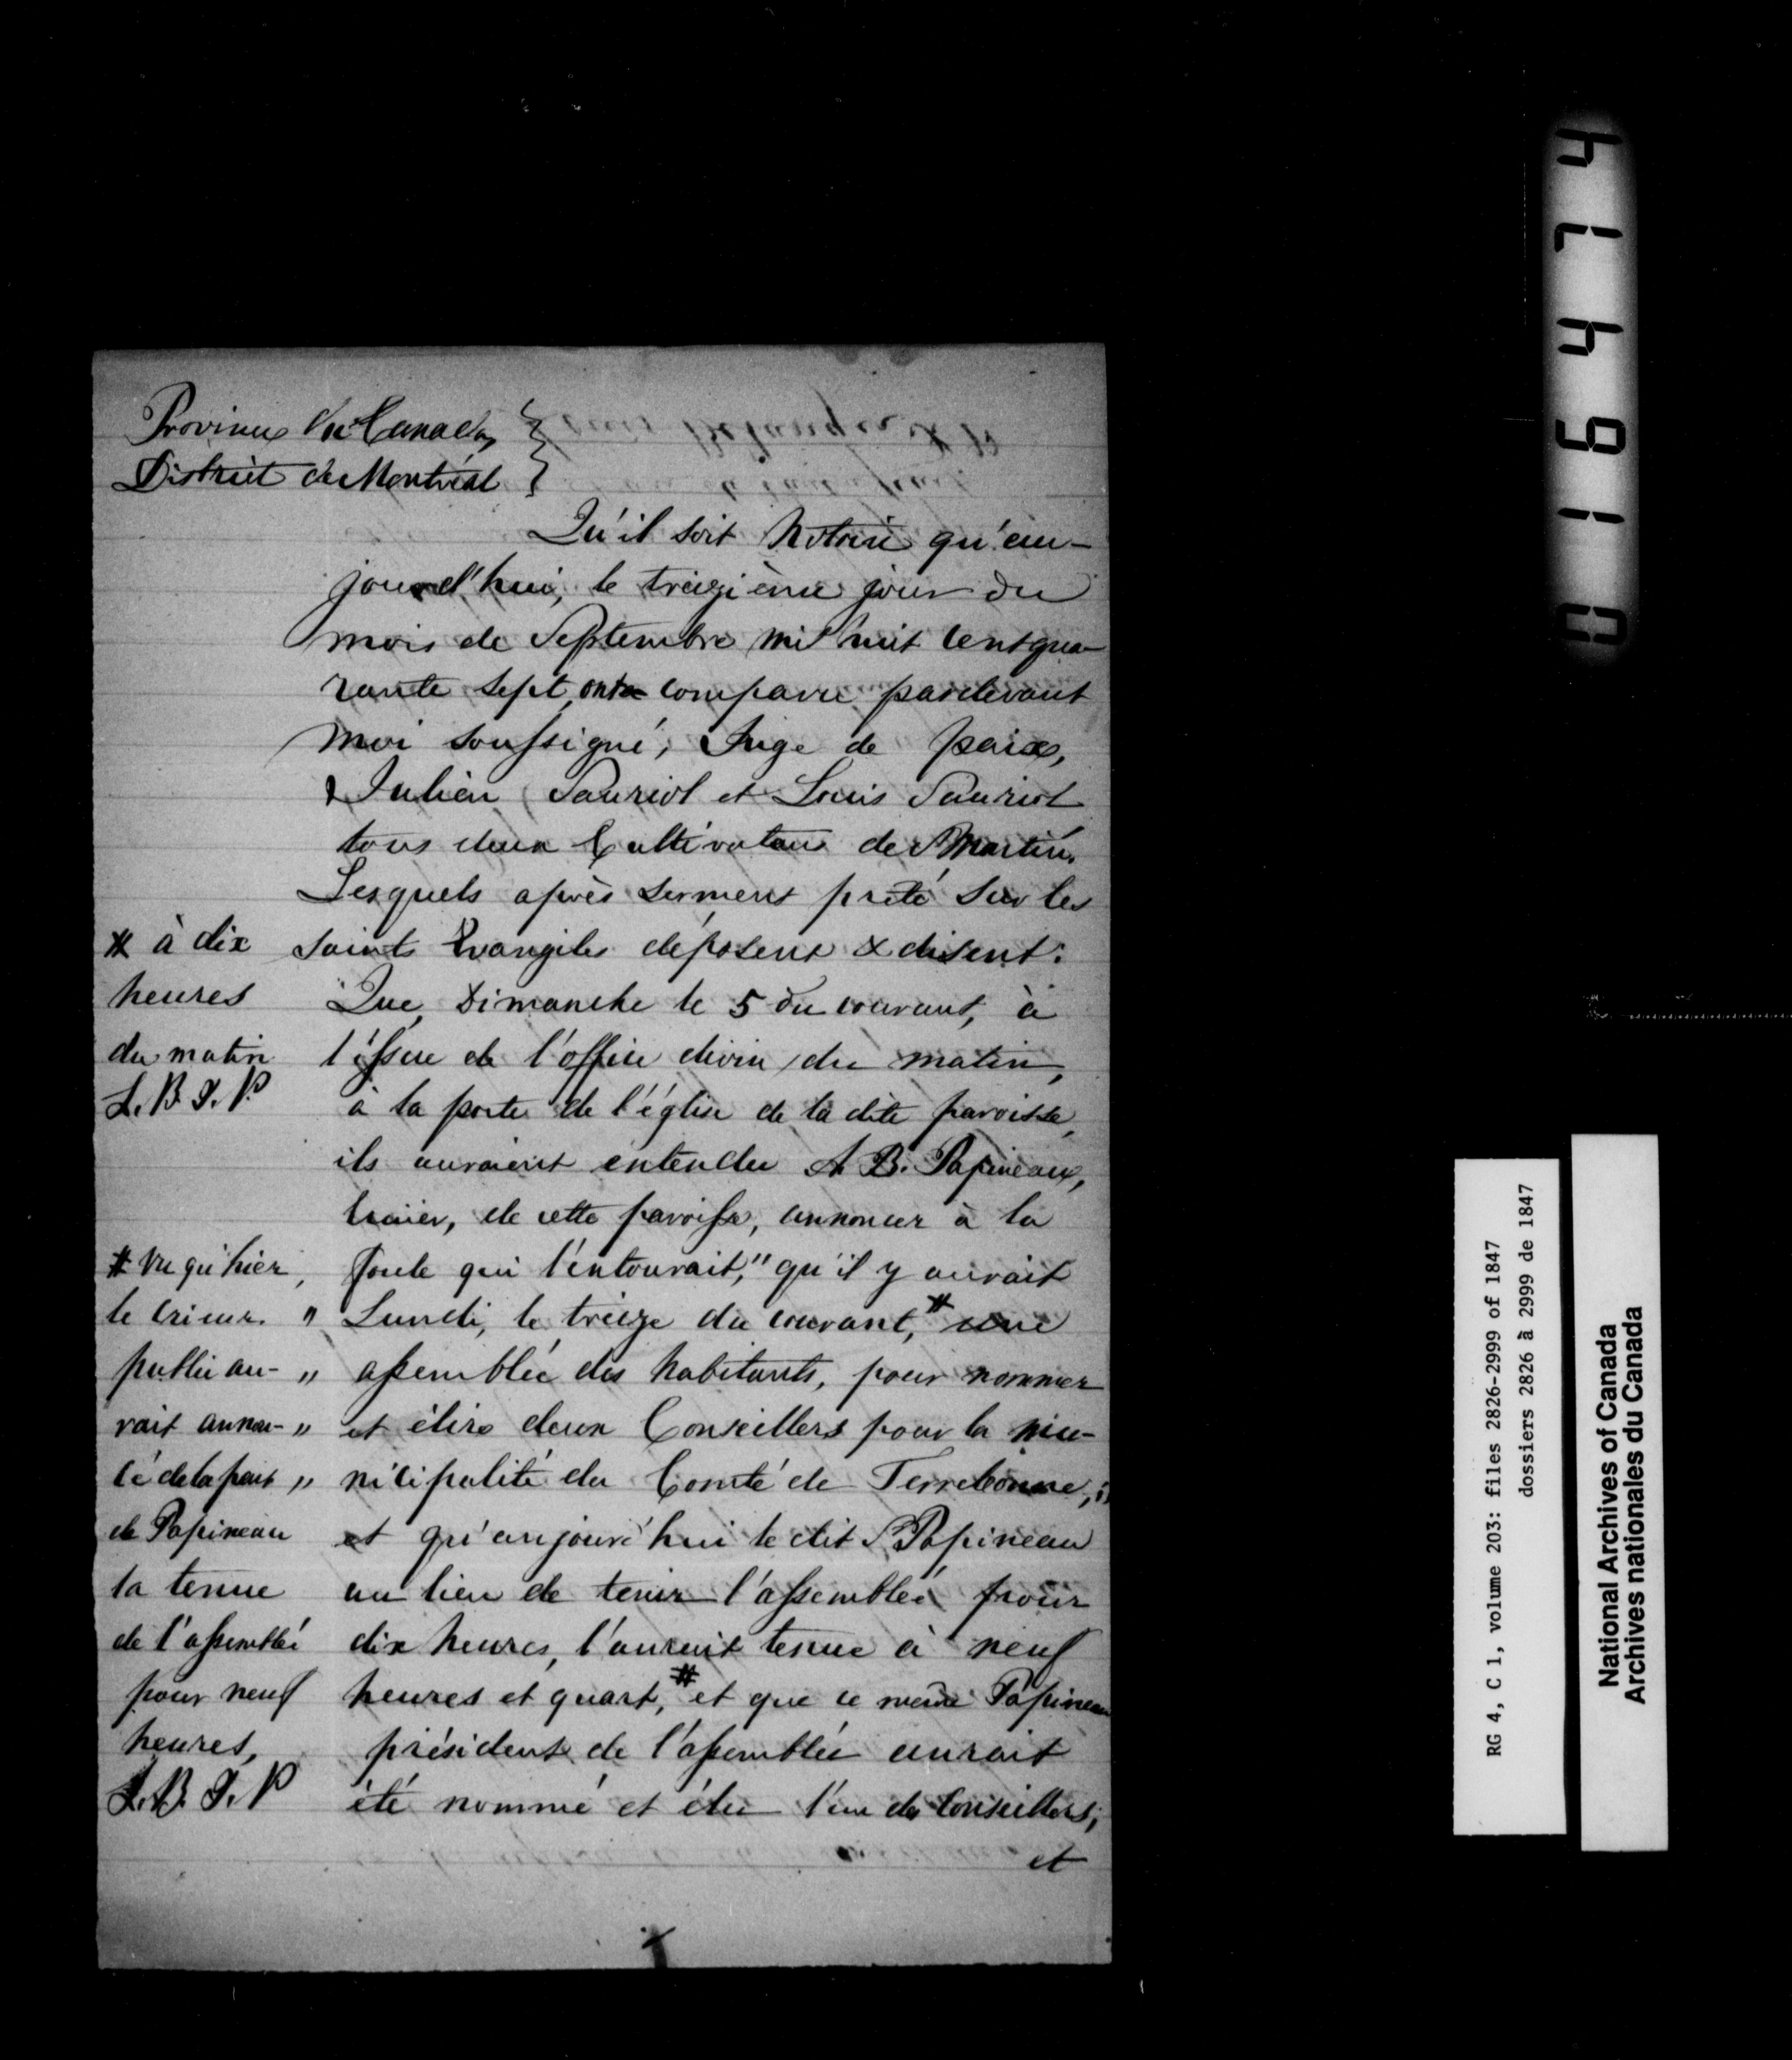 Province du Canada,
District de Montréal
Qu'il soit Notoire qu'au-
jourd'hui, le treizième jour du
mois de Septembre mil huit cent qua-
rante sept, ont comparu pardevant
moi soussigné, Juge de paix,
Julien Sauriol et Louis Sauriol
tous deux Cultivateurs de St Martin.
Lesquels après serment prêté sur les
saints Evangiles déposent & disent:
Que, Dimanche le 5 du courant, à
l'issue de l'office divin du matin,
à la porte de l'église de la dite paroisse,
ils auraient entendu A. B. Papineau,
de cette paroisse, annoncer à la
foule qui l'entourait, " qu'il y aurait
" Lundi, le treize du courant, # une
" assemblée des habitants, pour nommer
" et élire deux Conseillers pour la mu-
" nicipalité du Comté de Terrebonne, ;"
et qu'aujourd'hui le dit Sr Papineau
au lieu de tenir l'assemblée pour
dix heures, l'aurait tenue à neuf
heures et quart, # et que ce même Papineau
président de l'assemblée aurait
été nommé et élu l'un des Conseillers,
et
# à dix
heures
du matin
L. B. J. P.
# vu qu'hier,
le crieur
public au-
rait annon-
cé de la part
de Papineau
la tenue
de l'assemblée
pour neuf
heures,
L. B. J. P
016474
RG 4, C 1, volume 203: files 2826-2999 of 1847
dossiers 2826 à 2999 de 1847
National Archives of Canada
Archives nationales du Canada